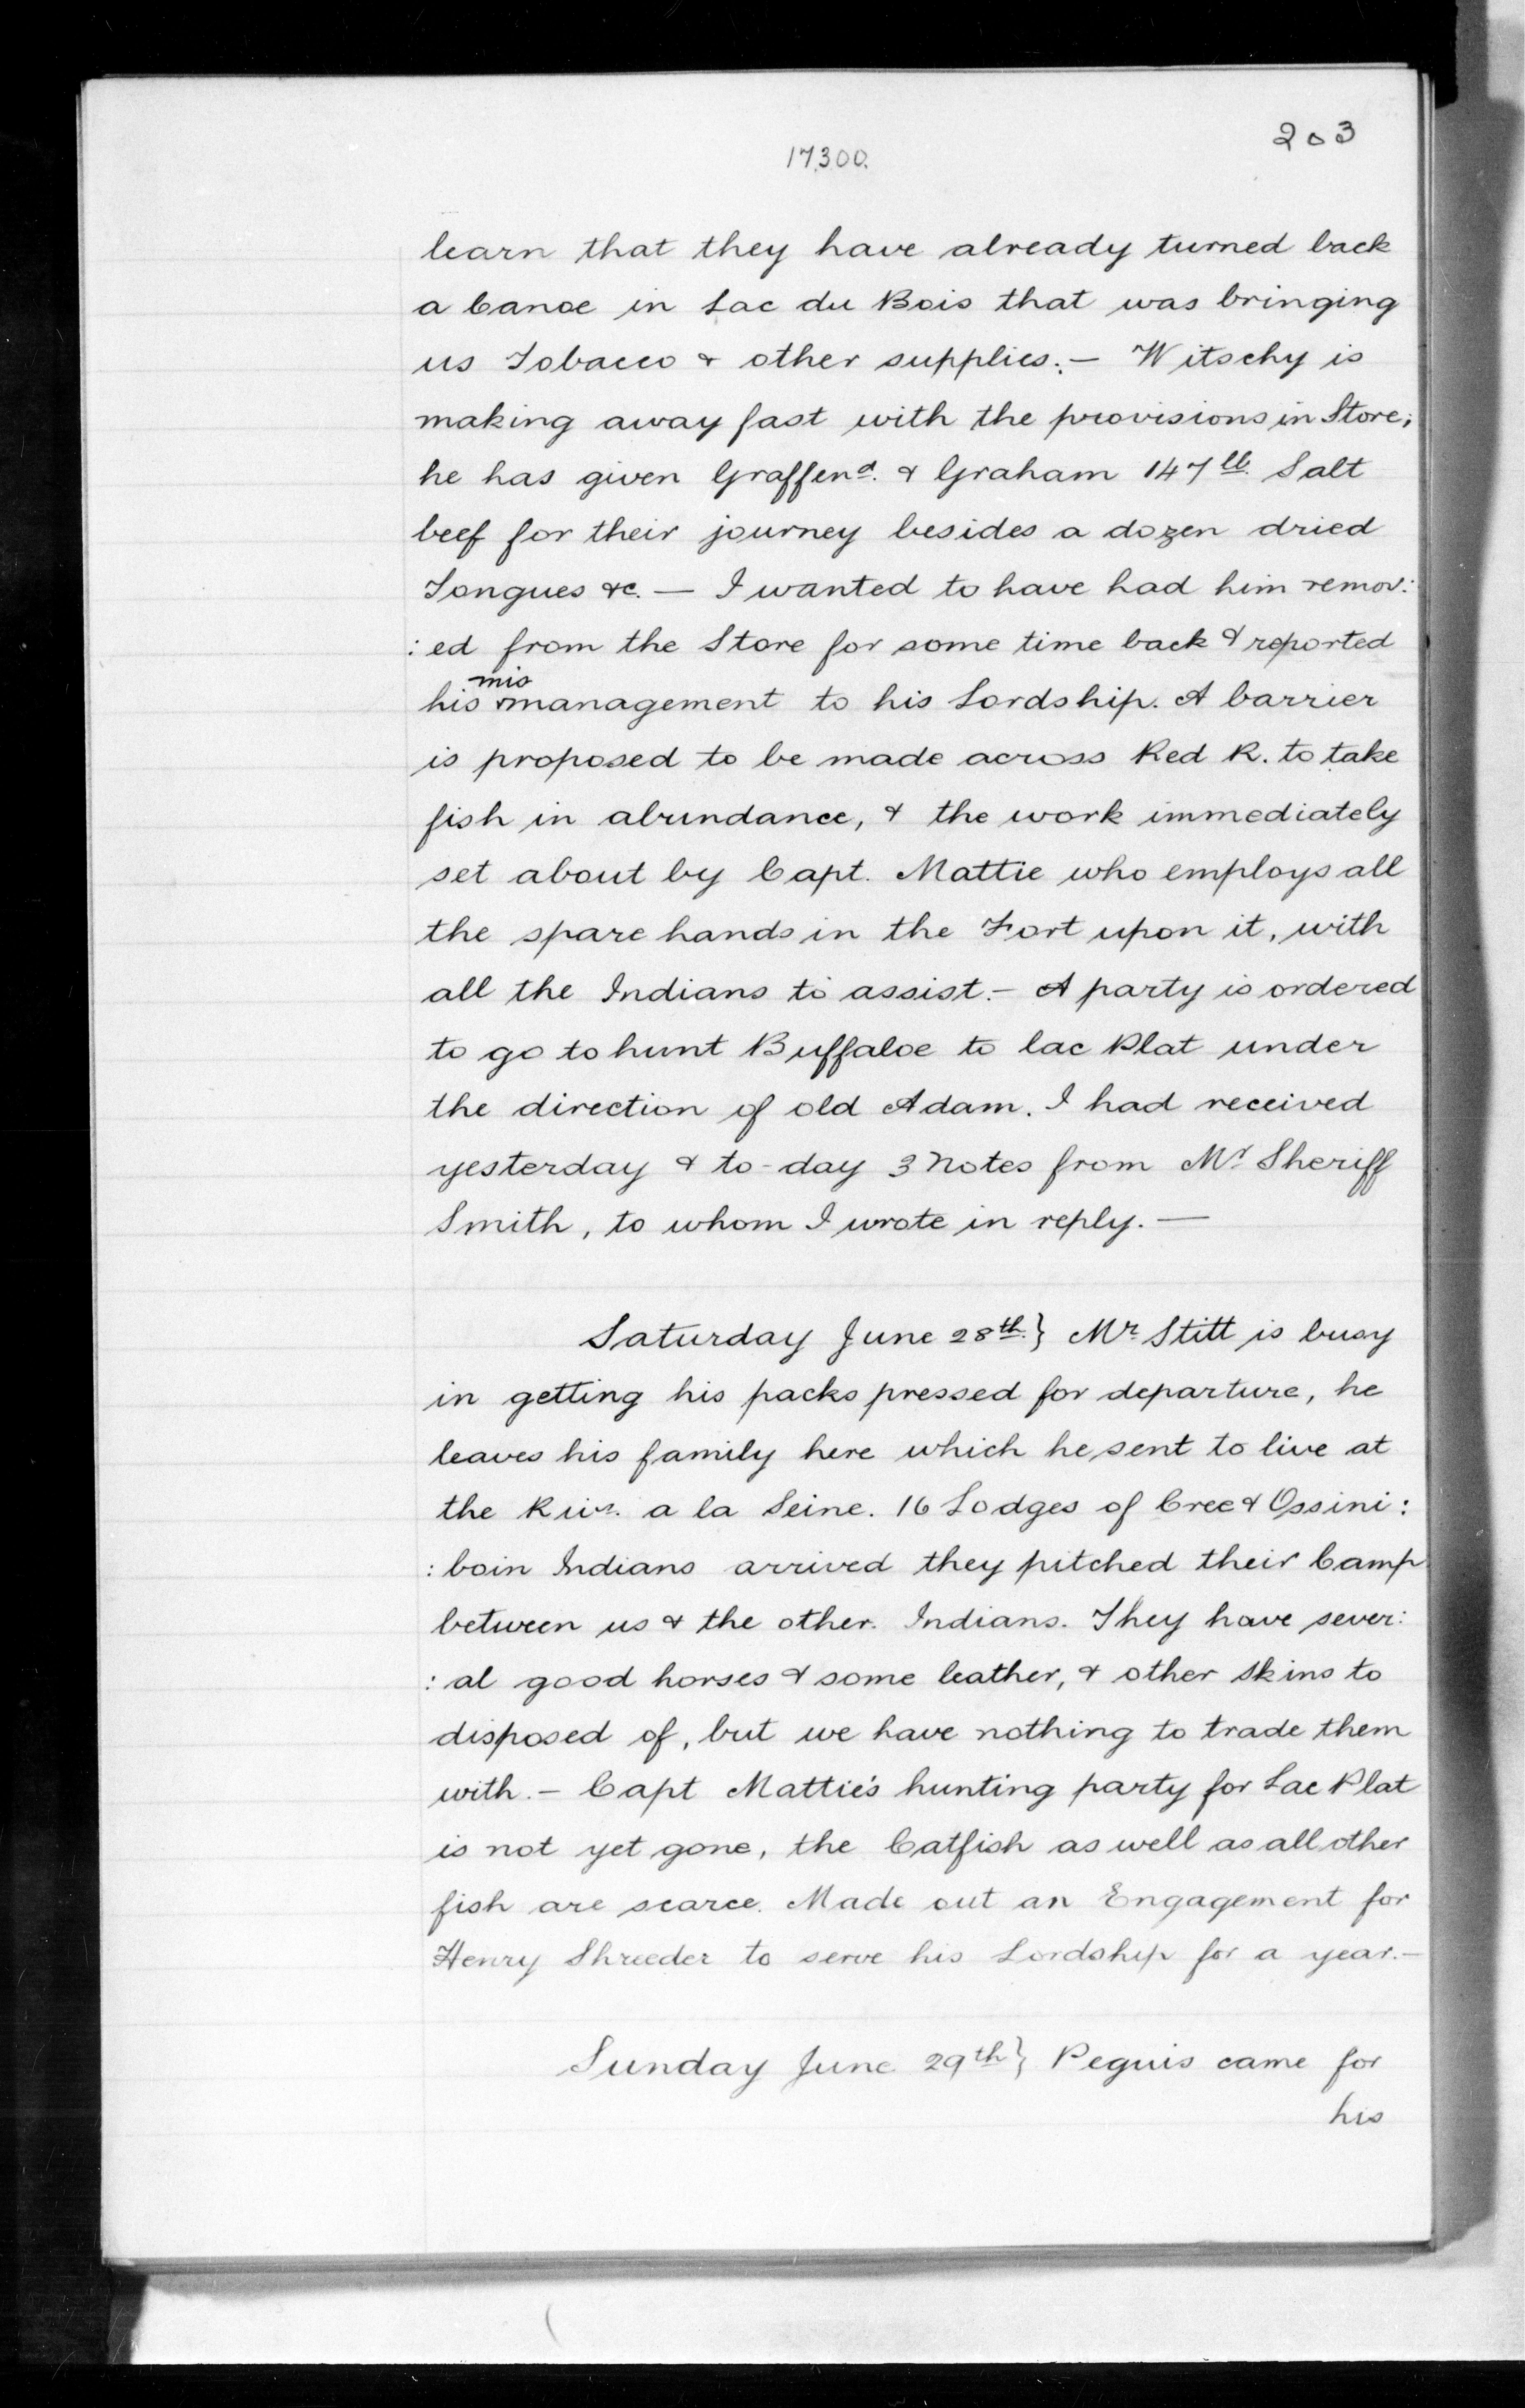 203
17300.
learn that they have already turned back
a Canoe in Lac du Bois that was bringing
us Tobacco & other supplies:— Witschy is
making away fast with the provisions in Store;
he has given Graffend. & Graham 147 lb. Salt
beef for their journey besides a dozen dried
Tongues &c. — I wanted to have had him remov:
:ed from the Store for some time back & reported
mis
his management to his Lordship. A barrier
is proposed to be made across Red R. to take
fish in abundance, & the work immediately
set about by Capt. Mattie who employs all
the spare hands in the Fort upon it, with
all the Indians to assist.— A party is ordered
to go to hunt Buffaloe to lac Plat under
the direction of old Adam. I had received
yesterday & to-day 3 Notes from Mr Sheriff
Smith, to whom I wrote in reply. —
Saturday June 28th.} Mr Stitt is busy
in getting his packs pressed for departure, he
leaves his family here which he sent to live at
the Rivr. a la Seine. 16 Lodges of Cree & Ossini:
:boin Indians arrived they pitched their Camp
between us & the other. Indians. They have sever:
:al good horses & some leather, & other skins to
disposed of, but we have nothing to trade them
with. — Capt Mattie's hunting party for Lac Plat
is not yet gone, the Catfish as well as all other
fish are scarce. Made out an Engagement for
Henry Shreeder to serve his Lordship for a year.—
Sunday June 29th} Peguis came for
his